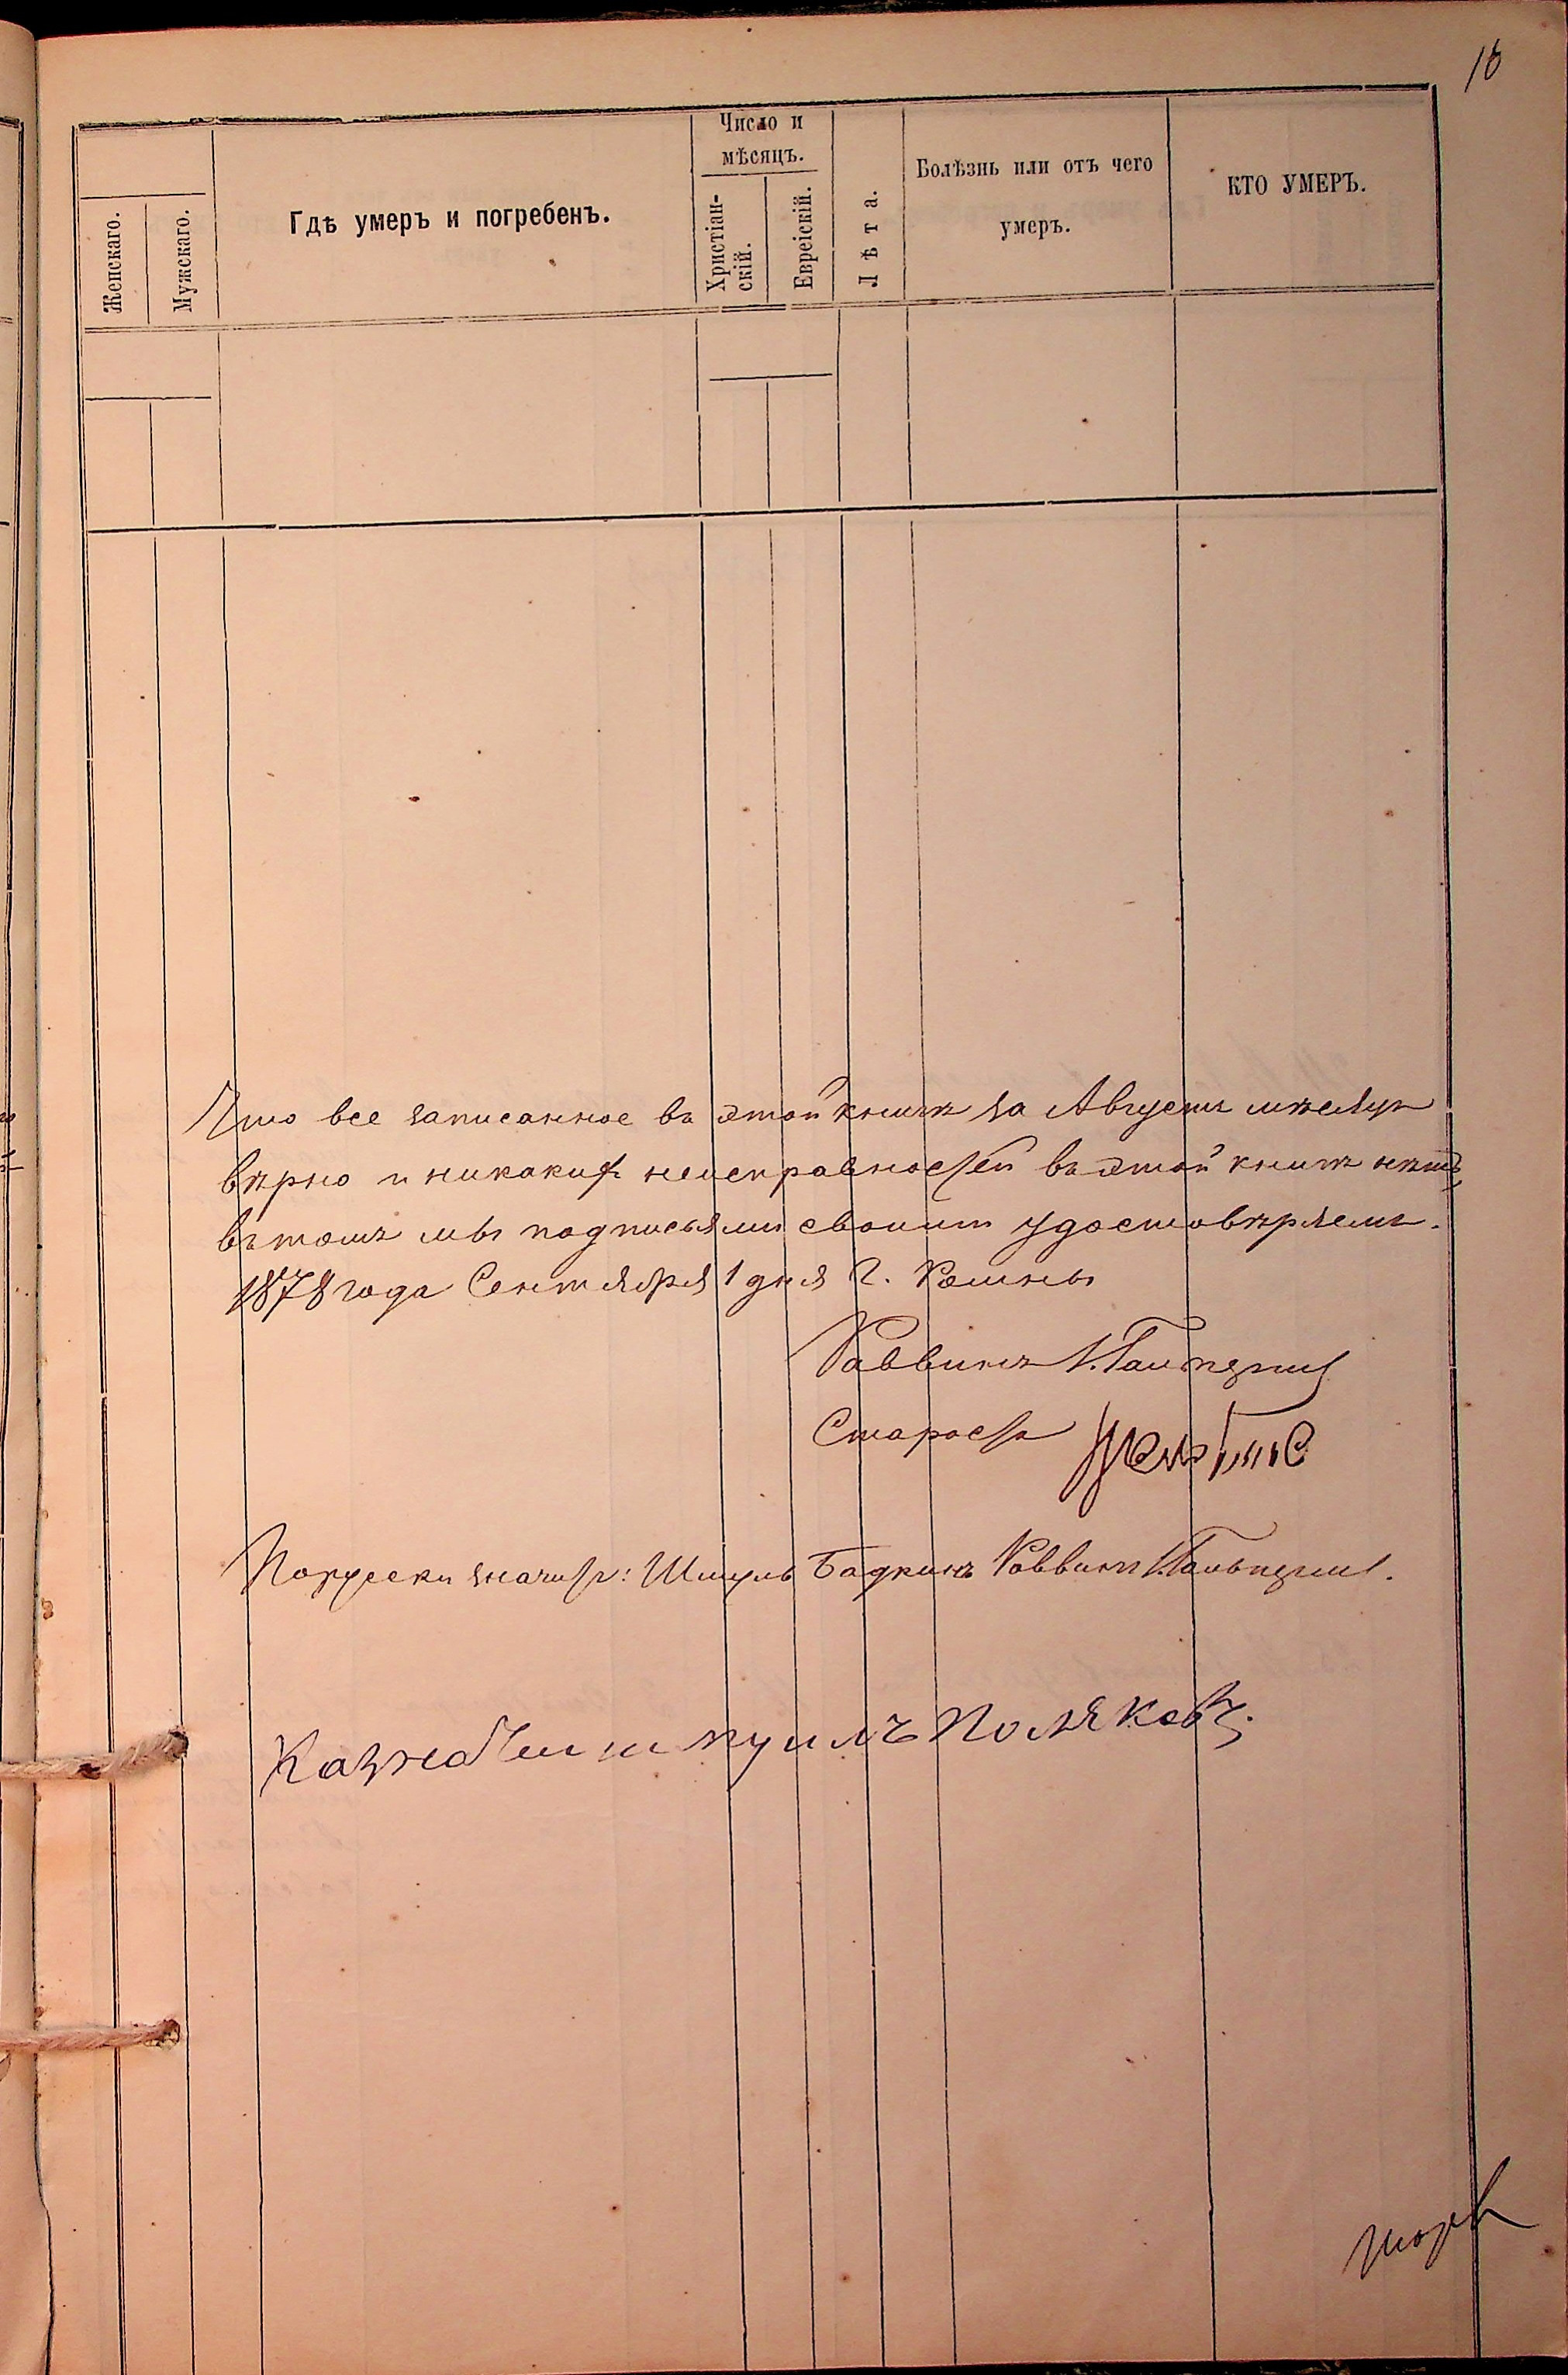 16
Женскаго.
Мужскаго.
Гдѣ умеръ и погребенъ.
Число и
мѣсяцъ.
Христіан-
скій.
Евреіскій.
Лѣта.
Болѣзнь или отъ чего
умеръ.
КТО УМЕРЪ.
Что все записанное въ этой книгѣ за Августъ мѣсяцъ
вѣрно и никакихъ неисправностей въ этой книгѣ нѣтъ
въ томъ мы подписями своими удостовѣряемъ.
1878 года Сентября 1 дня Г. Ромны
Раввинъ И. Гальперинъ
Староста
Порусски значитъ: Шмуль Бадкинъ Раввинъ И. Гальперинъ.
Казначеи шмуилъ Поляковъ.